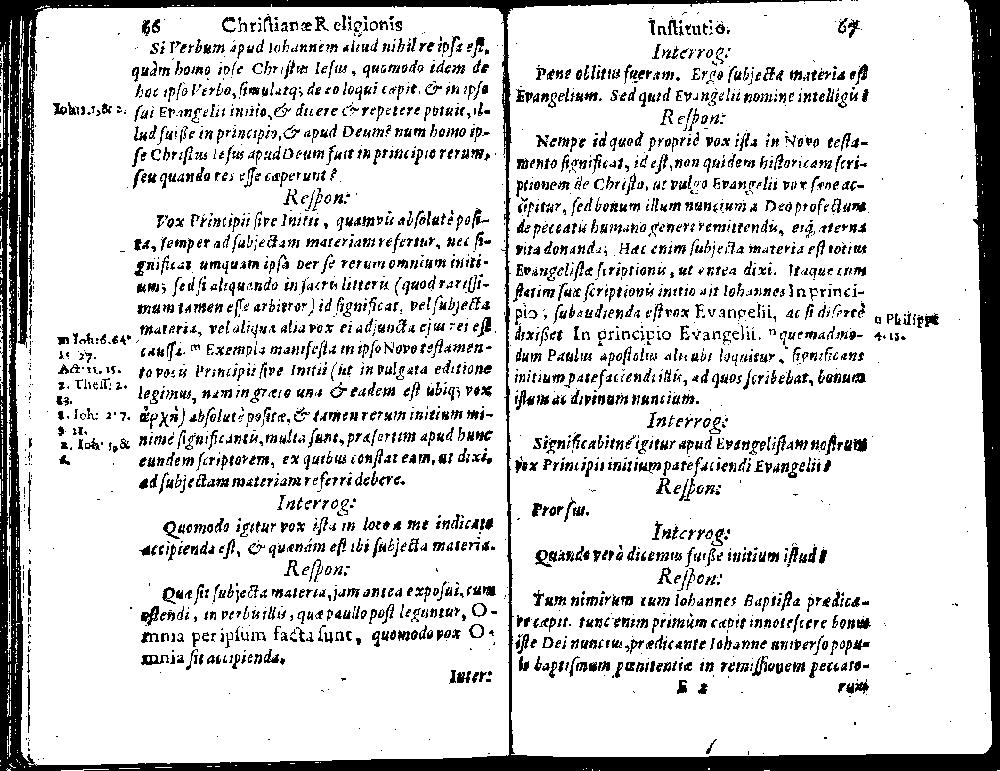 66 Christianæ Religionis
Si Verbum apud Iohannem aliud nihil re ipsa est,
quàm homo ipse Christus Iesus, quomodo idem de
hoc ipso Verbo, simulatq; de eo loqui cœpit, & in ipso
Ioh: 1. 1, & 2.
sui Evangelii initio, & dicere & repetere potuit, il-
lud fuisse in principio, & apud Deum? num homo ip-
se Christus Iesus apud Deum fuit in principio rerum,
seu quando res esse cœperunt?
Respon:
Vox Principii sive Initii, quamvis absolutè posi-
ta, semper ad subjectam materiam refertur, nec si-
gnificat umquam ipsa per se rerum omnium initi-
um; sed si aliquando in sacris litteris (quod rarissi-
mum tamen esse arbitror) id significat, vel subjecta
materia, vel aliqua alia vox ei adjuncta ejus rei est
caussa. m Exempla manifesta in ipso Novo testamen-
to vocis Principii sive Initii (ut in vulgata editione
legimus, nam in græco una & eadem est ubiq; vox
ἀρχὴ) absolutè positæ, & tamen rerum initium mi-
nimè significantis, multa sunt, præsertim apud hunc
eundem scriptorem, ex quibus constat eam, ut dixi,
ad subjectam materiam referri debere.
m Joh: 6. 64
15. 27.
Act: 11. 15.
2. Thess: 2.
13.
1. Joh: 2. 7.
2. Joh: 5, &
6.
Interrog:
Quomodo igitur vox ista in loco a me indicato
accipienda est, & quænam est ibi subjecta materia.
Respon:
Quæ sit subjecta materia, jam antea exposui, cum
ostendi, in verbis illis, quæ paullo post leguntur, O-
mnia per ipsum facta sunt, quomodo vox O-
mnia sit accipienda.
Inter:
Institutio. 67
Interrog:
Pæne oblitus fueram. Ergo subjecta materia est
Evangelium. Sed quid Evangelii nomine intelligis?
Respon:
Nempe id quod propriè vox ista in Novo testa-
mento significat, id est, non quidem historicam scri-
ptionem de Christo, ut vulgo Evangelii vox sæpe ac-
cipitur, sed bonum illum nuncium a Deo profectum
de peccatis humano generi remittendis, eiq; æterna
vita donanda; Hæc enim subjecta materia est totius
Evangelistæ scriptionis, ut antea dixi. Itaque cum
statim suæ scriptionis initio ait Iohannes In princi-
pio, subaudienda est vox Evangelii, ac si disertè
dixisset In principio Evangelii. n quemadmo-
dum Paulus apostolus alicubi loquitur, significans
initium patefaciendi illis, ad quos scribebat, bonum
istum ac divinum nuncium.
n Philipp:
4. 15.
Interrog:
Significabitne igitur apud Evangelistam nostrum
vox Principii initium patefaciendi Evangelii?
Respon:
Prorsus.
Interrog:
Quando verò dicemus fuisse initium istud?
Respon:
Tum nimirum cum Iohannes Baptista prædica-
re cœpit. tunc enim primùm cœpit innotescere bonus
iste Dei nuncius, prædicante Iohanne universo popu-
lo baptismum pœnitentiæ in remissionem peccato-
E 2 rum